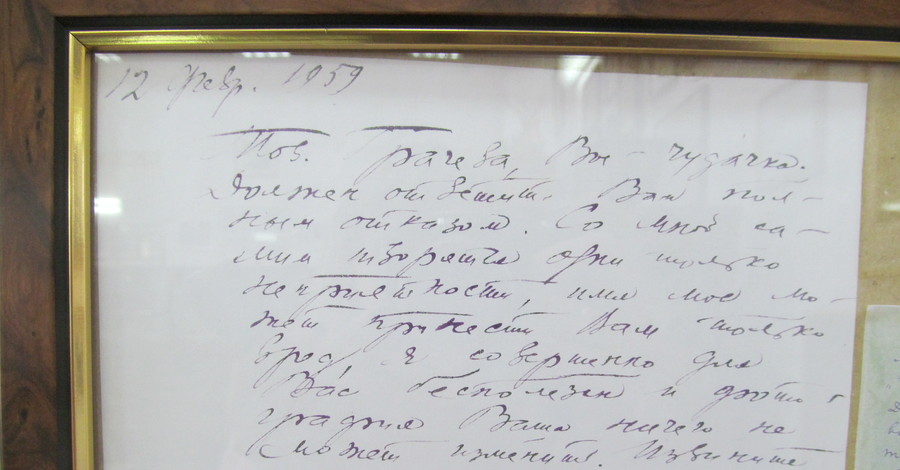 12 Февр. 1959
Тов. Грачева, Вы – чудачка.
Должен ответить Вам пол-
ным отказом. Со мной са-
мим творятся одни только
неприятности, имя мое мо-
жет принести Вам только
вред, я совершенно для
Вас бесполезен и фото-
графия Ваша ничего не
сможет изменить. Извините